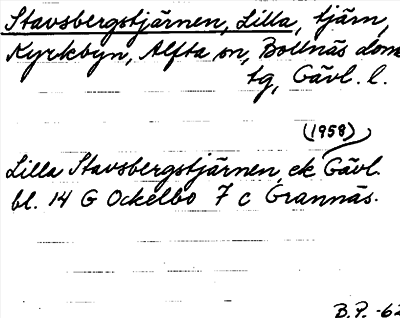 Stavsbergstjärnen, Lilla, tjärn,
Kyrkbyn, Alfta sn, Bollnäs doms
tg, Gävl. l.
(1958)
Lilla Stavsbergstjärnen, ek Gävl.
bl. 14 G Ockelbo 7 c Grannäs.
B.P. -62